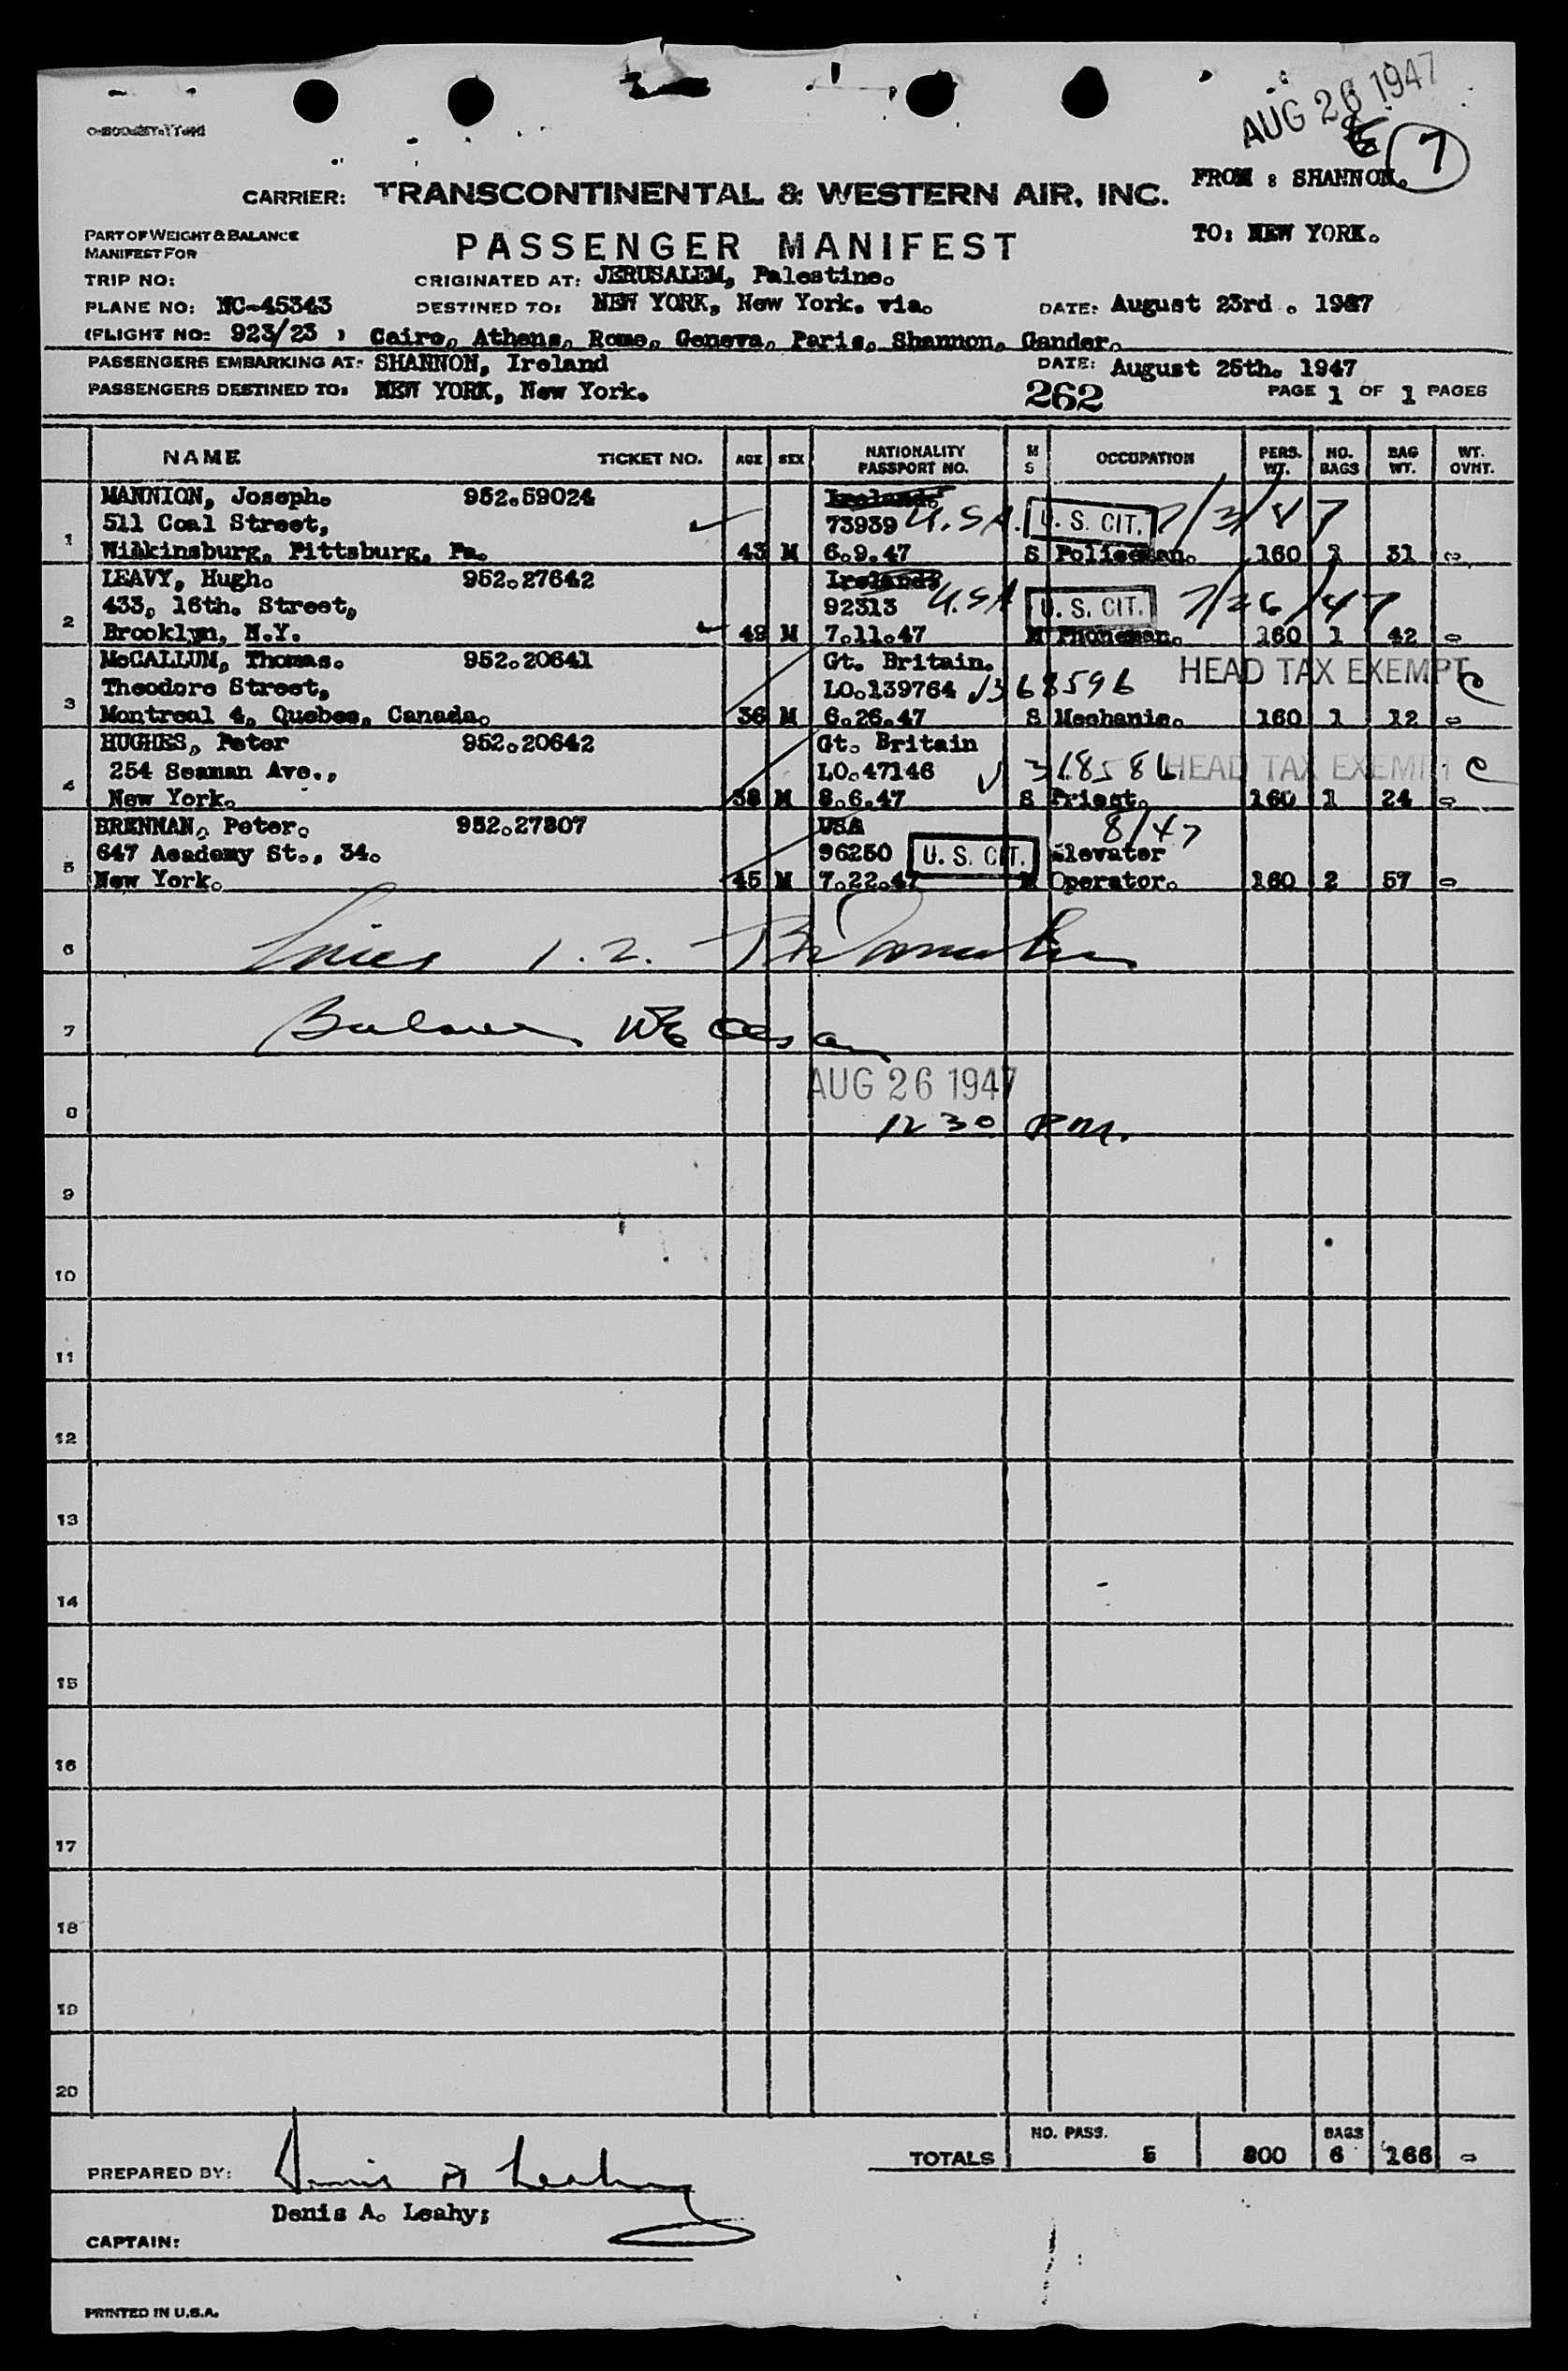 AUG 26 1947
7
FROM : SHANNON.
CARRIER: TRANSCONTINENTAL & WESTERN AIR, INC.
TO: NEW YORK.
PART OF WEIGHT & BALANCE
MANIFEST FOR
PASSENGER MANIFEST
TRIP NO: ORIGINATED AT: JERUSALEM, Palestine.
PLANE NO: NC-45343 DESTINED TO: NEW YORK, New York. via. DATE: August 23rd. 1947
(FLIGHT NO: 923/23 ) Cairo, Athens, Rome, Geneva, Paris, Shannon, Gander.
PASSENGERS EMBARKING AT: SHANNON, Ireland DATE: August 25th. 1947
PASSENGERS DESTINED TO: NEW YORK, New York. 262 PAGE 1 OF 1 PAGES
NAME TICKET NO. AGE SEX NATIONALITY PASSPORT NO. M S OCCUPATION PERS. WT. NO. BAGS BAG WT. WT. OVHT.
MANNION, Joseph. 952.59024 Ireland.
511 Coal Street, 73939 U.S.A. U. S. CIT. 7/3/47
1 Wilkinsburg, Pittsburg, Pa. 43 M 6.9.47 S Policeman. 160 1 31 0
LEAVY, Hugh. 952.27642 Ireland.
433, 16th. Street, 92313 U.S.A U. S. CIT. 7/26/47
2 Brooklyn, N.Y. 49 M 7.11.47 M Phoneman. 160 1 42 0
McCALLUM, Thomas. 952.20641 Gt. Britain. HEAD TAX EXEMPT
Theodore Street, LO.139764 368596
3 Montreal 4, Quebec, Canada. 36 M 6.26.47 S Mechanic. 160 1 12 0
HUGHES, Peter 952.20642 Gt. Britain
254 Seaman Ave., LO.47146 HEAD TAX EXEMPT
4 New York. 38 M 8.6.47 S Priest. 160 1 24 0
BRENNAN, Peter. 952.27307 USA 8/47
647 Academy St., 34. 96250 U. S. CIT. Elevator
5 New York. 45 M 7.22.47 M Operator. 160 2 57 0
6 Lines 1. 2.
7 Balance
8 AUG 26 1947
12 30 P.M.
9
10
11
12
13
14
15
16
17
18
19
20
NO. PASS. BAGS
TOTALS 5 800 6 166 0
PREPARED BY: Denis A Leahy
Denis A. Leahy;
CAPTAIN:
PRINTED IN U.S.A.